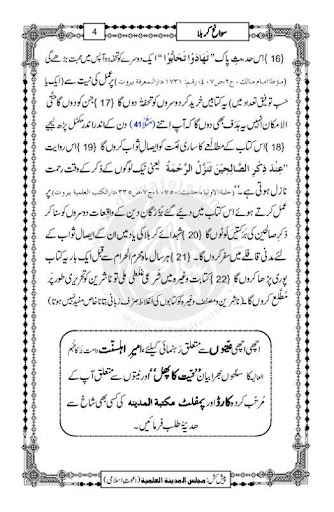 سوانح کربلا
4
{16} اس حدیثِ پاک ”تَهَادَوْا تَحَابُّوْا“ ایک دوسرے کو تحفہ دو آپس میں محبت بڑھے گی
(مؤطا امام مالک، ج۲، ص۴۰۷، رقم: ۱۷۳۱، دارالمعرفة بیروت) پر عمل کی نیت سے (ایک یا
حسبِ توفیق تعداد میں) یہ کتابیں خرید کر دوسروں کو تحفۃً دوں گا {17} جن کو دوں گا حتّی
الامکان انہیں یہ ہدف بھی دوں گا کہ آپ اتنے (مثلاً 41) دن کے اندر اندر مکمل پڑھ لیجیے
{18} اس کتاب کے مطالعے کا ساری امّت کو ایصالِ ثواب کروں گا {19} اس روایت
”عِنْدَ ذِکْرِ الصَّالِحِیْنَ تَنَزَّلُ الرَّحْمَةُ یعنی نیک لوگوں کے ذکر کے وقت رحمت
نازل ہوتی ہے۔“ (حلیة الاولیاء، حدیث: ۱۰۷۵۰، ج۷، ص۳۳۵، دارالکتب العلمیة بیروت) پر
عمل کرتے ہوئے اس کتاب میں دیئے گئے بزرگانِ دین کے واقعات دوسروں کو سنا کر
ذکرِ صالحین کی برکتیں لوٹوں گا {20} شہدائے کربلا کی یاد میں ان کے ایصالِ ثواب کے
لئے مدنی قافلے میں سفر کروں گا۔ {21} ہر سال ماہِ محرم الحرام سے قبل ایک بار یہ کتاب
پوری پڑھا کروں گا {22} کتابت وغیرہ میں شرعی غلطی ملی تو ناشرین کو تحریری طور پر
مُطَّلع کروں گا۔ (ناشرین و مصنّف وغیرہ کو کتابوں کی اغلاط صرف زبانی بتانا خاص مفید نہیں ہوتا)
اچھی اچھی نیّتوں سے متعلق رہنمائی کیلئے، امیرِ اہلسنّت دامت برکاتہم
العالیہ کا سنّتوں بھرا بیان ”نیت کا پھل“ اور نیتوں سے متعلق آپ کے
مُرتَّب کردہ کارڈ اور پمفلٹ مکتبۃ المدینہ کی کسی بھی شاخ سے
ھدیّۃً طلب فرمائیں۔
پیش کش: مجلس المدینۃ العلمیۃ (دعوتِ اسلامی)